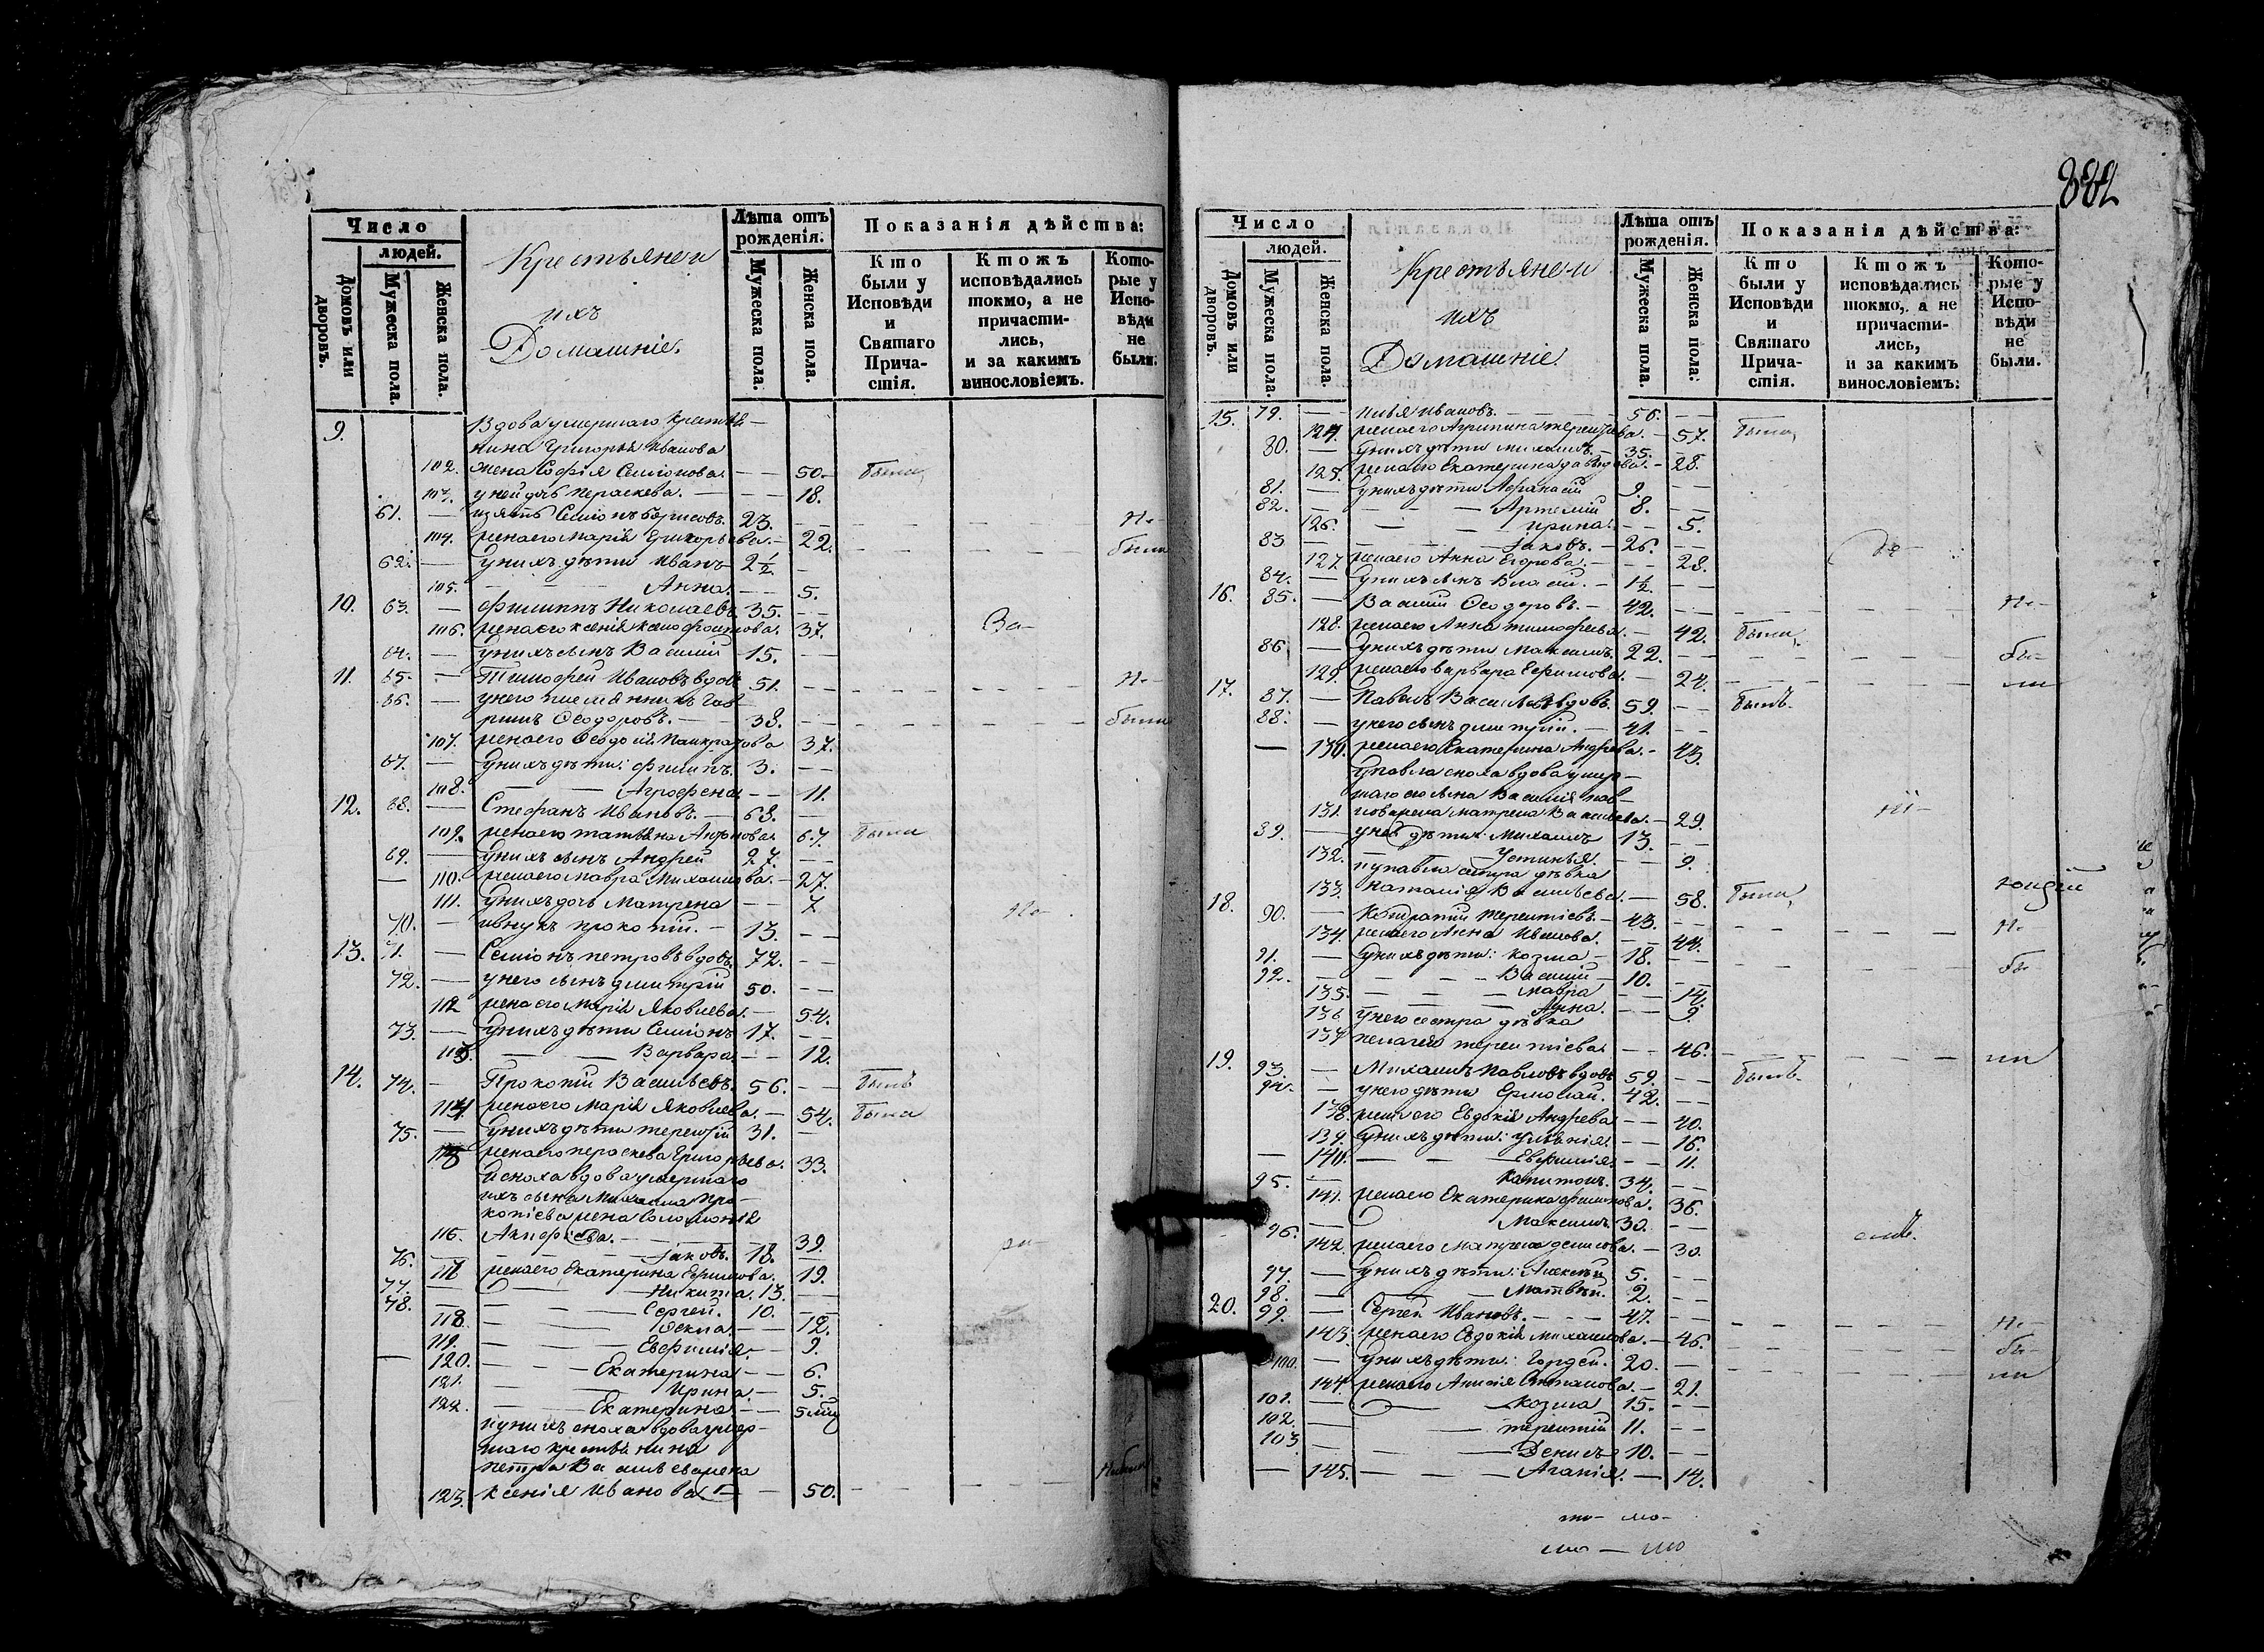 882
Число
людей.
Домовъ или дворовъ.
Мужеска пола.
Женска пола.
Крестьяне и
ихъ
Домашніе.
Лѣта отъ рожденія.
Мужеска пола.
Женска пола.
Показанія дѣйства:
Кто были у Исповѣди и Святаго Прича-стія.
Ктожъ исповѣдались токмо, а не причасти-лись, и за какимъ винословіемъ.
Кото-рые у Испо-вѣди не были.
9. Вдова умершаго крестья-
нина Григорья Иванова
102. жена Софія Семіонова. 50. были
103. у ней дочь Пераскева. 18.
61. изять Семіонъ Борисовъ. 23. Не-
104. жена его Марія Григорьева. 22. были
62. У нихъ дѣти Иванъ 2½
105. Анна. 5.
10. 63. Филиппъ Николаевъ 35.
106. жена его Ксенія Ксенофонтова. 37. За-
64. У нихъ сынъ Василій 15.
11. 65. Тимофей Ивановъ вдовъ 51. Не-
66. у него племянникъ Гав-
рилъ Ѳеодоровъ. 38. были
107. жена его Ѳеодосія Панкратова 37.
67. У нихъ дѣти: Филипъ. 3.
108. Агрофена 11.
12. 68. Стефанъ Ивановъ. 63.
109. жена его Татьяна 67. были
69. У нихъ сынъ Андрей 27.
110. жена его Мавра Михаилова. 27.
111. У нихъ дочь Матрена 7
70. ивнукъ Прокопій. 13.
13. 71. Семіонъ Петровъ вдовъ. 72.
72. у него сынъ Дмитрій 50.
112 жена его Марія Яковлева. 54.
73. У нихъ дѣти Семіонъ 17.
113. Варвара 12.
14. 74. Прокопій Васильевъ. 56. былъ
114 жена его Марія Яковлева. 54. была
75. У нихъ дѣти Терентій 31.
115 жена его Пераскева Григорьева. 33.
Исноха вдова умершаго
ихъ сына Михаила Про-
копіева жена Соломонія
116. 39.
76. Іаковъ. 18.
117 жена его Екатерина Ефимова. 19.
77. Никита. 13.
78. Сергей. 10.
118. Ѳекла. 12.
119. Евфимія. 9.
120. Екатерина 6.
121. Ирина. 5.
122. Екатерина
и у нихъ сноха вдова умер-
шаго крестьянина
Петра Васильева жена
123. Ксенія Иванова 50.
Число
людей.
Домовъ или дворовъ.
Мужеска пола.
Женска пола.
Крестьяне и
ихъ
Домашніе
Лѣта отъ рожденія.
Мужеска пола.
Женска пола.
Показанія дѣйства:
Кто были у Исповѣди и Святаго Прича-стія.
Ктожъ исповѣдались токмо, а не причасти-лись, и за какимъ винословіемъ:
Кото-рые у Испо-вѣди не были.
15. 79. Илья Ивановъ. 56.
124. жена его Агрипина Терентьева. 57. были,
80. У нихъ дѣти Михаилъ. 35.
125. жена его Екатерина Давыдова. 28.
81. У нихъ дѣти Афанасій 9.
82. Артемій 8.
126. Ирина. 5.
83 Іаковъ. 26.
127 жена его Анна Егорова. 28.
84. У нихъ сынъ Власій. 1½
16. 85. Василій Ѳеодоровъ. 42. Не-
128. жена его Анна Тимофеева. 42. были,
86. У нихъ дѣти Максимъ. 22. бы-
129. жена его Варвара Ефимова. 24. ли
17. 87. Павелъ Васильевъ вдовъ. 59. былъ.
88. у него сынъ Дмитрій. 41.
130. жена его Екатерина Андреева. 43.
У Павла сноха вдова умер-
шаго сына Василія Пав-
131. лова жена Матрена Васильева. 29.
89. У ней дѣти: Михаилъ 13.
132. Устинья. 9.
и у Павла сестра дѣвка
133. Наталія Васильева. 58. были,
18. 90. Кондратій Терентіевъ. 43. Не-
134. жена его Анна Иванова. 44.
91. У нихъ дѣти: Козма 18. бы-
92. Василій 10.
135. Мавра 14.
136 Анна. 9.
у него сестра дѣвка
137 Пелагея Терентіева. 46. ли
19. 93. Михаилъ Павловъ вдовъ 59. былъ.
94. у него дѣти Ермолай. 42.
138. жена его Евдокія Андреева 40.
139. У нихъ дѣти: Ульянія. 16.
140. Евфимія. 11.
95. Капитонъ. 34.
141. жена его Екатерина Филипова. 36.
96. Максимъ 30.
142 жена его Матрена Денисова. 30.
97. У нихъ дѣти: Алексѣй 5.
98. Матвѣй. 2.
20. 99. Сергей Ивановъ. 47. Не-
143. жена его Евдокія Михаилова. 46.
100. У нихъ дѣти: Гордей. 20. бы-
144 жена его Анисія 21. ли
101. Козма 15.
102. Терентій 11.
103 Денисъ 10.
145. Агапія. 14.